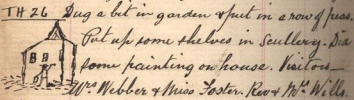 TH 26 Dug a bit in garden & put in a row of peas.
Put up some shelves in Scullery. Did
some painting on house. Visitors—
Mrs Webber & Miss Foster. Rev & Mrs Wills.